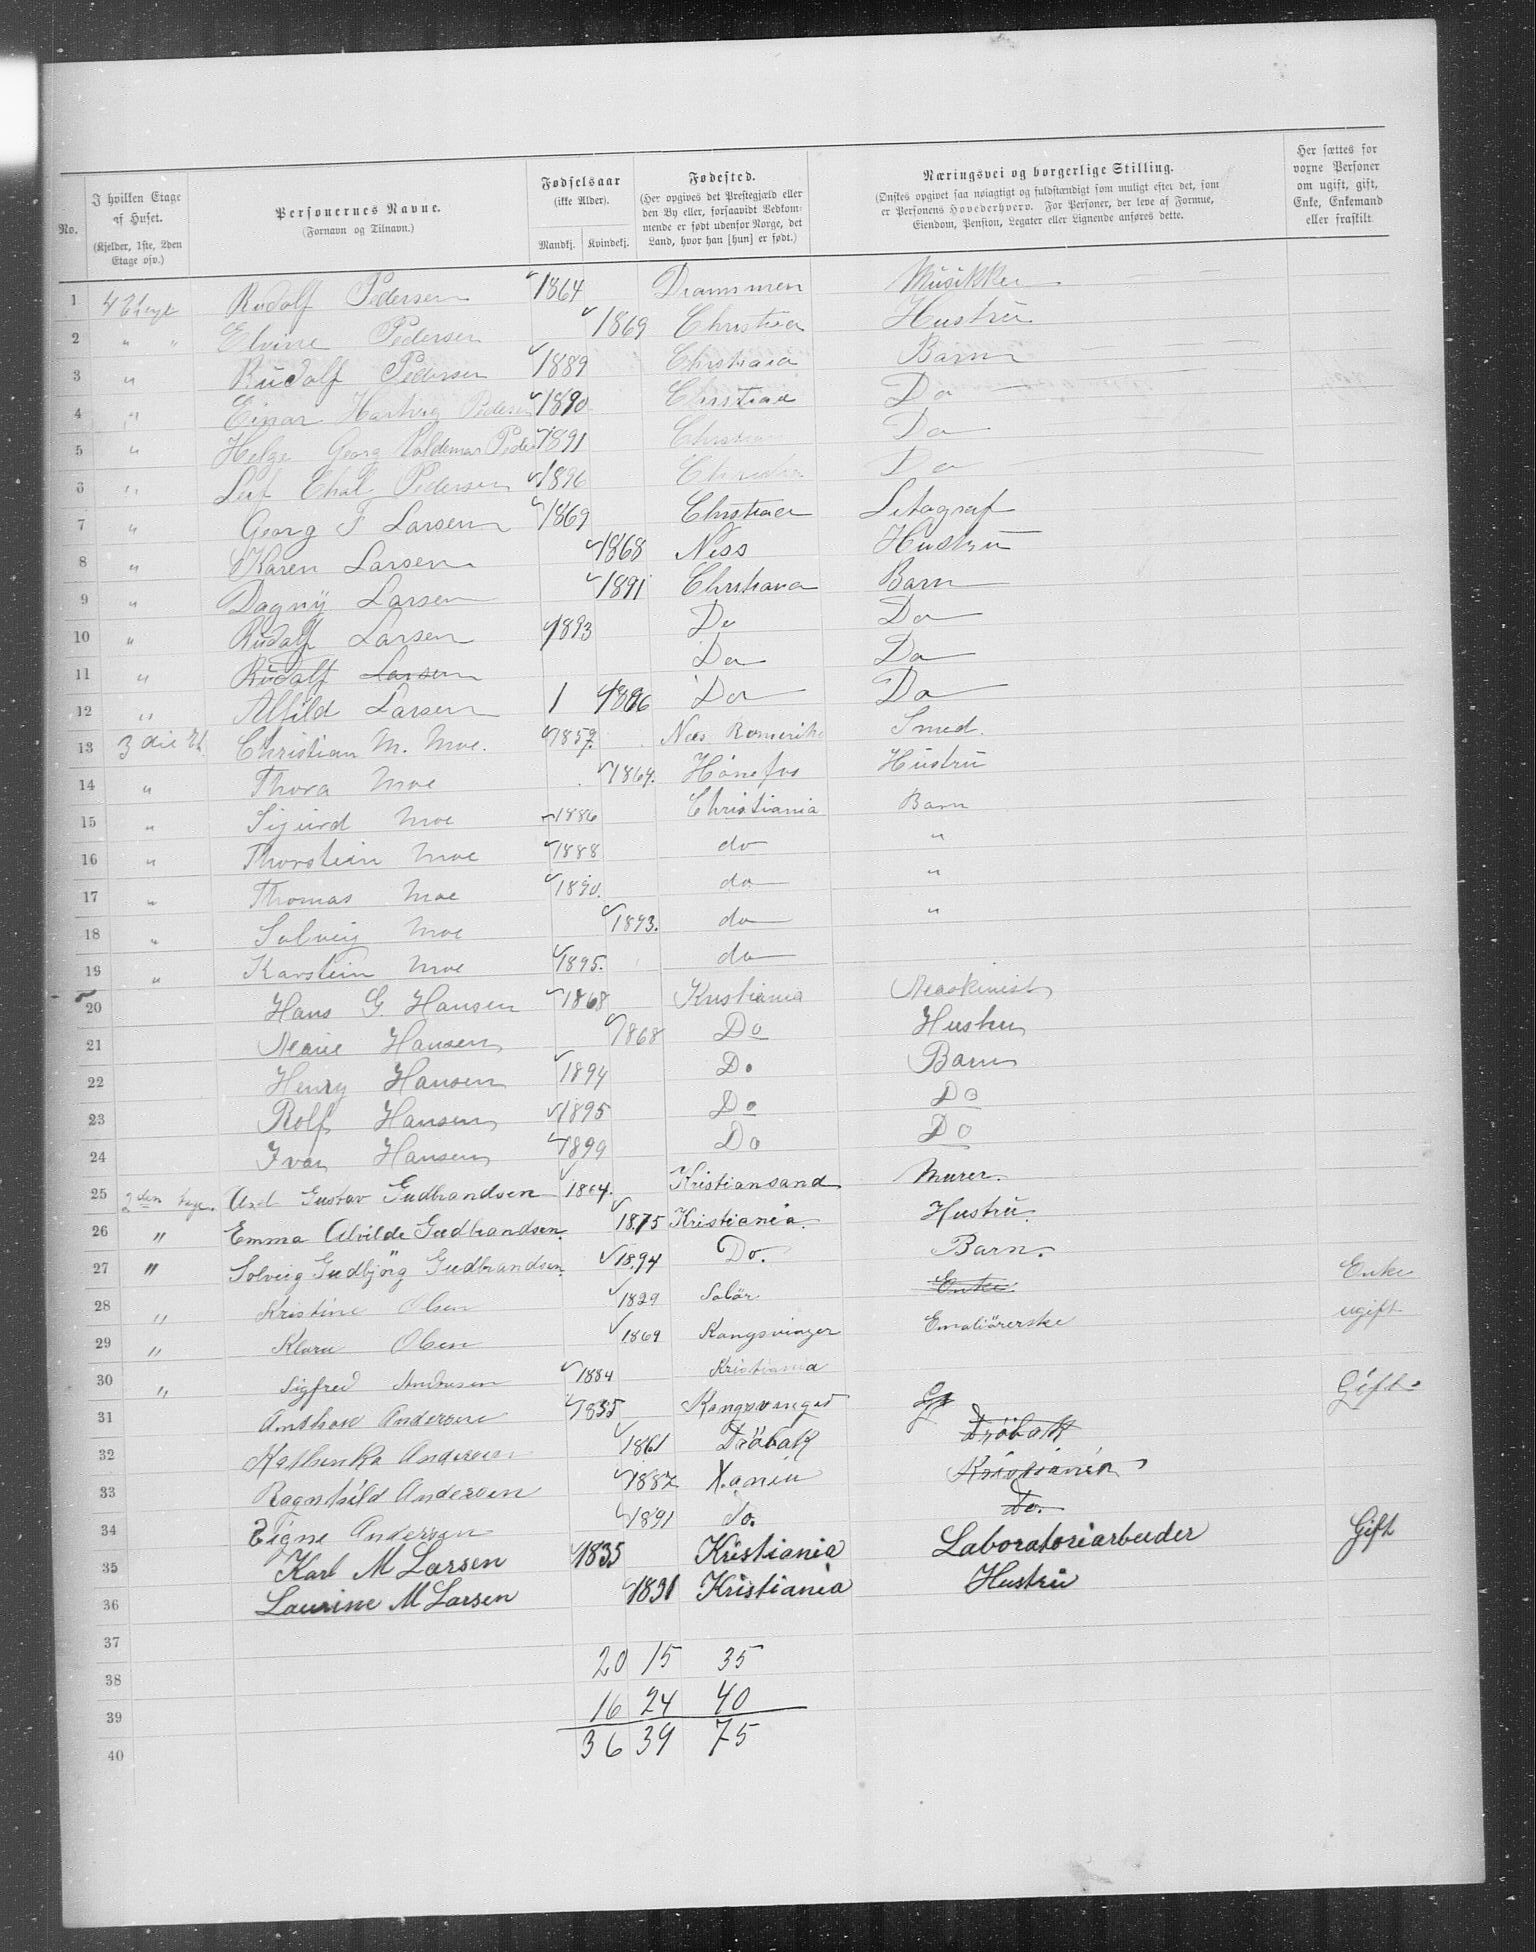 No. | I hvilken Etage af Huset. (Kjelder, 1ste, 2den Etage osv.) | Personernes Navne. (Fornavn og Tilnavn.) | Fødselsaar (ikke Alder). Mandkj. Kvindekj. | Fødested. (Her opgives det Præstegjæld eller den By eller, forsaavidt Vedkommende er født udenfor Norge, det Land, hvor han [hun] er født.) | Næringsvei og borgerlige Stilling. (Ønskes opgivet saa nøiagtigt og fuldstændigt som muligt efter det, som er Personens Hovederhverv. For Personer, der leve af Formue, Eiendom, Pension, Legater eller Lignende anføres dette.) | Her sættes for voxne Personer om ugift, gift, Enke, Enkemand eller fraskilt.
1 4 Rudolf Pedersen 1864 Drammen Musikker
2 " " Elvine Pedersen 1869 Christiaa Hustrü
3 " Rüdolf Pedersen 1889 Christiaia Barn
4 " Einar Hartvig Pedersen 1890 Christiaa Do
5 " Helge Georg Valdemar Peders 1891 Christian Do
6 " Leif Pedersen 1896 Do
7 " Georg F Larsen 1869 Christiaa Litograf
8 " Karen Larsen 1868 Ness Hustrü
9 " Dagnÿ Larsen 1891 Christiana Barn
10 " Rüdolf Larsen 1893 Do Do
11 " Rüdolf Larsen Do Do
12 " Alfild Larsen 1 1896 Do Do
13 3die Et Christian M. Moe. 1857. Næs Romerike Smed.
14 " Thora Moe 1864. Hønefos Hüstrü
15 " Sigurd Moe 1886 Christiania Barn
16 " Thorstein Moe 1888 do "
17 " Thomas Moe 1890. do "
18 " Solveig Moe 1893. do "
19 " Karstein Moe 1895. do
20 Hans G. Hansen 1868 Kristiania Maskinist
21 Marie Hansen 1868 Do Hustru
22 Henry Hansen 1894 Do Barn
23 Rolf Hansen 1895 Do Do
24 Ivar Hansen 1899 Do Do
25 2den tage. Gustav Gudbrandsen 1864. Kristiansand Murer.
26 " Emma Alvilde Gudbrandsen. 1875 Kristiania. Hustrü.
27 " Solveig Gudbjörg Gudbrandsen. 1894 Do. Barn.
28 " Kristine Olsen 1829 Solör Enke. Enke
29 " Klara Olsen 1869 Kongsvinger Emaliörerske ugift
30 " Sigfred Andersen 1884 Kristiania
31 Andersen 1835 Kongsvinger Gift.
32 Kathinka Andersen 1861 Dröbak Dröbak
33 Ragnhild Andersen 1887 X.ania Kristiania
34 Signe Andersen 1891 do. Do.
35 Karl M Larsen 1835 Kristiania Laboratoriarbeider Gift
36 Laurine M Larsen 1831 Kristiania Hustrü
37
38 20 15 35
39 16 24 40
40 36 39 75